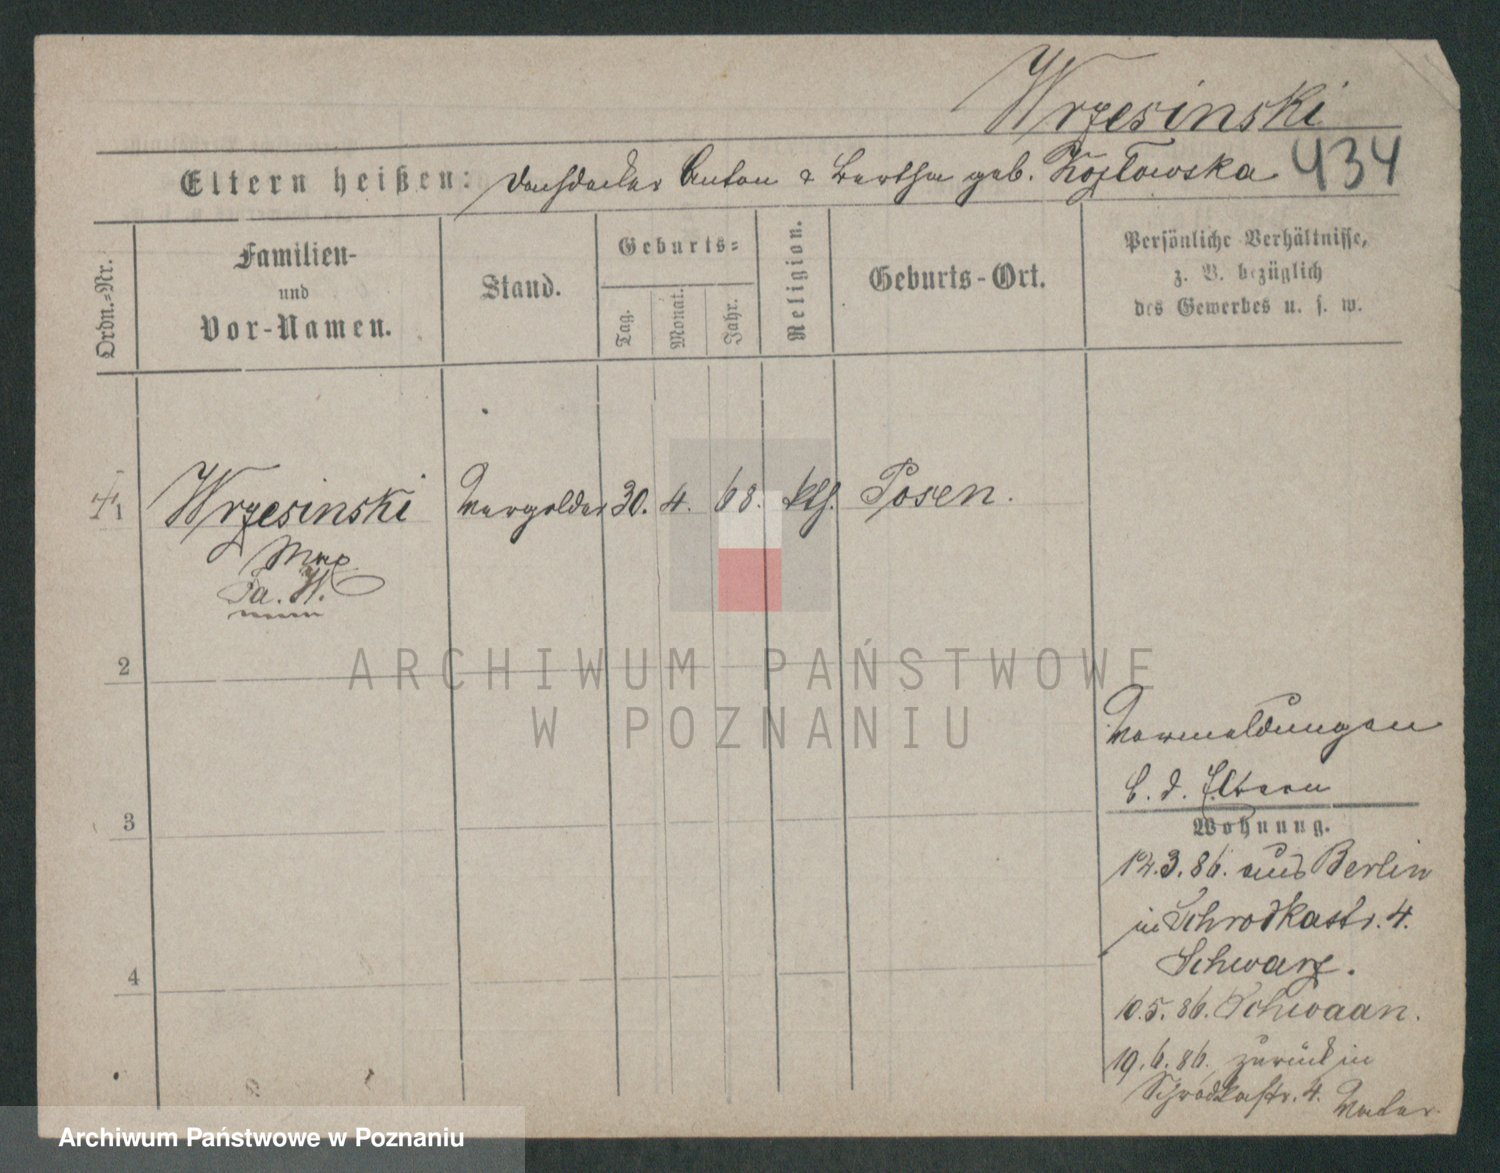 Wrzesinski
434
Eltern heißen: Dachdecker Anton & Bertha geb. Kozlowska
Ordn.=Nr.
Familien-
und
Vor-Namen.
Stand.
Geburts=
Tag.
Monat.
Jahr.
Religion.
Geburts-Ort.
Persönliche Verhältnisse,
z. B. bezüglich
des Gewerbes u. s. w.
1 Wrzesinski Vergolder 30. 4. 68. kth. Posen.
Max
Fa. W.
2
ARCHIWUM PAŃSTWOWE
W POZNANIU
Vormeldungen
b. d. Eltern
3
Wohnung.
12.3.86. aus Berlin
in Schrodkastr. 4.
Schwarz.
4
10.5.86. Schwaan.
19.6.86. zurück in
Schrodkastr. 4. Vater
Archiwum Państwowe w Poznaniu